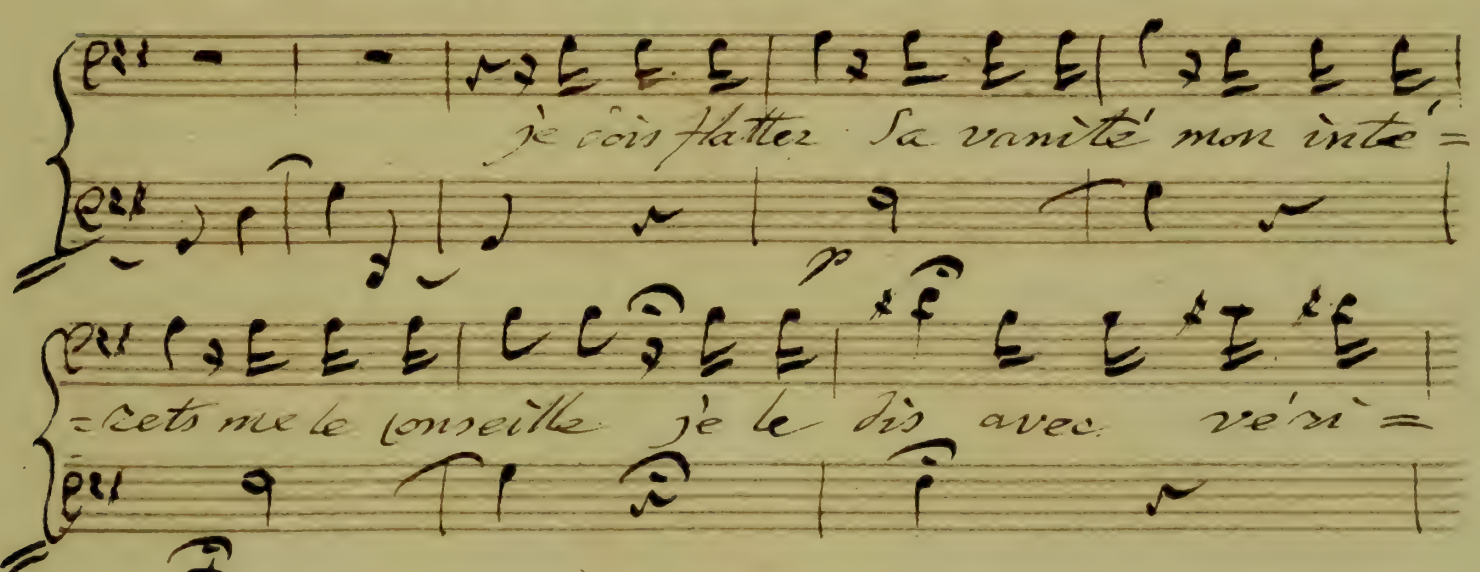 je dois flatter Sa vanité mon inté=
p
=rets me le conseille je le dis avec véri=